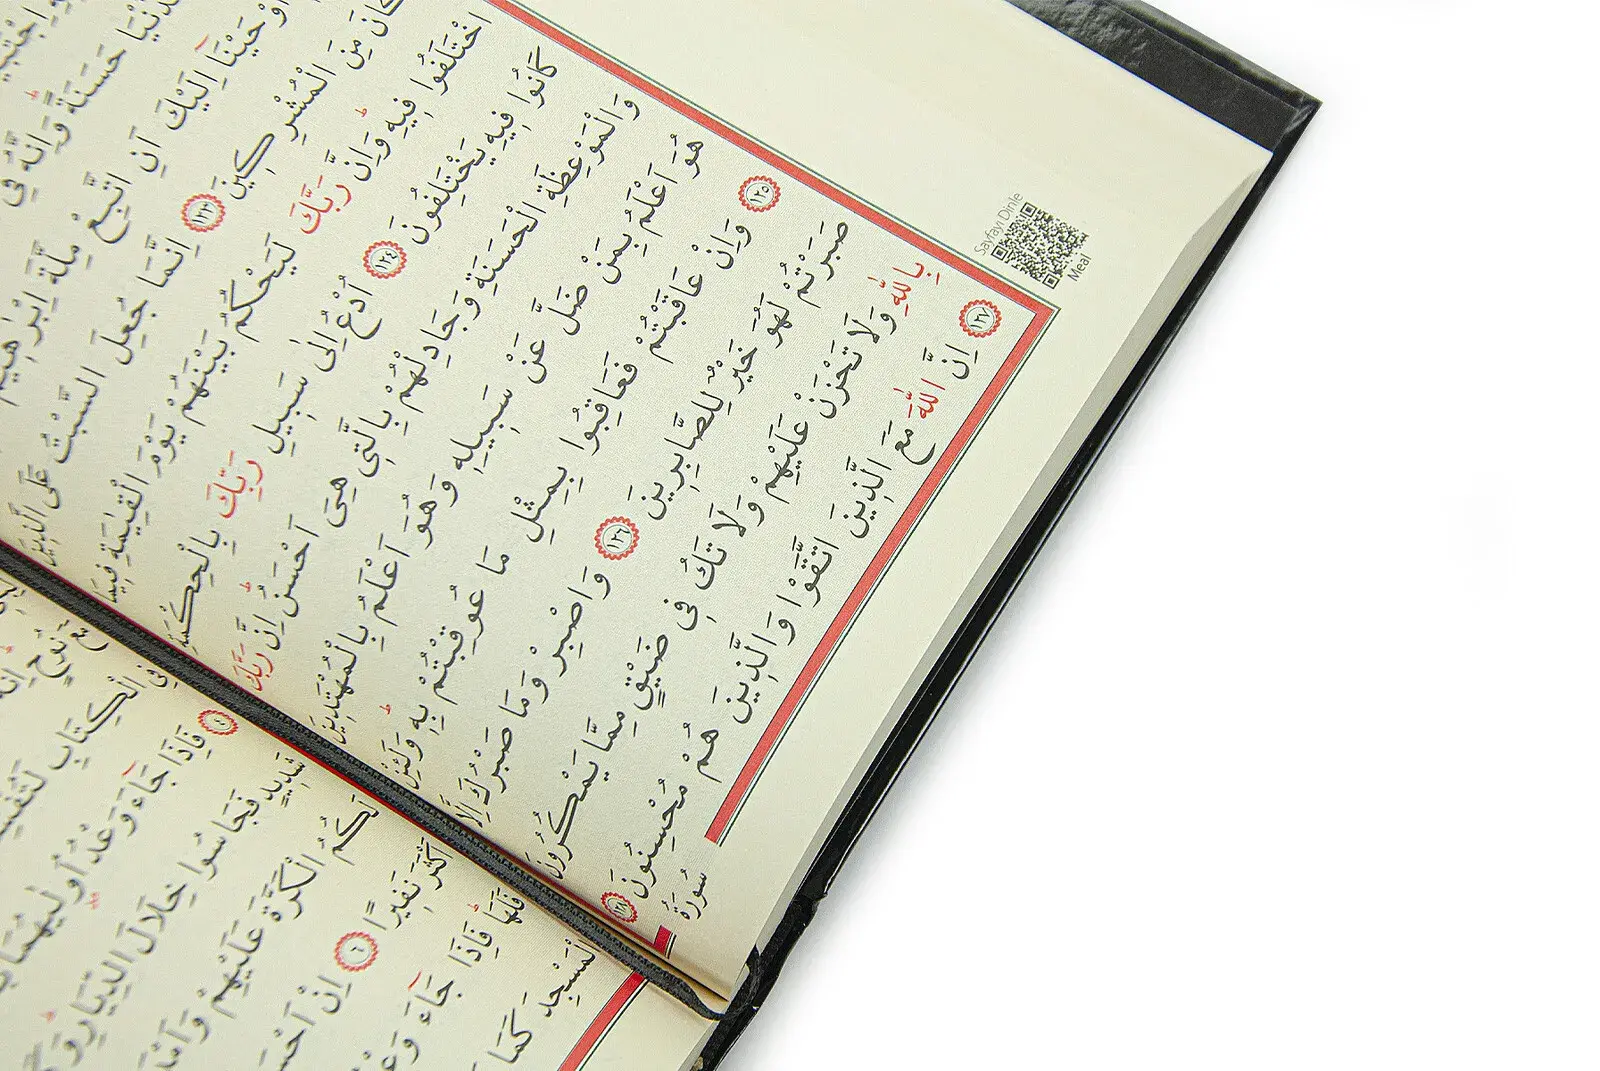 الدُّنْيَا حَسَنَةً وَاِنَّهُ فِى
اَوْحَيْنَا اِلَيْكَ اَنِ اتَّبِعْ مِلَّةَ اِبْرٰهِيمَ
كَانَ مِنَ الْمُشْرِكِينَ ١٢٣ اِنَّمَا جُعِلَ السَّبْتُ عَلَى الَّذِينَ
اخْتَلَفُوا فِيهِ وَاِنَّ رَبَّكَ لَيَحْكُمُ بَيْنَهُمْ يَوْمَ الْقِيٰمَةِ فِيمَا
كَانُوا فِيهِ يَخْتَلِفُونَ ١٢٤ اُدْعُ اِلٰى سَبِيلِ رَبِّكَ بِالْحِكْمَةِ
وَالْمَوْعِظَةِ الْحَسَنَةِ وَجَادِلْهُمْ بِالَّتِى هِىَ اَحْسَنُ اِنَّ رَبَّكَ
هُوَ اَعْلَمُ بِمَنْ ضَلَّ عَنْ سَبِيلِهِ وَهُوَ اَعْلَمُ بِالْمُهْتَدِينَ
١٢٥ وَاِنْ عَاقَبْتُمْ فَعَاقِبُوا بِمِثْلِ مَا عُوقِبْتُمْ بِهِ وَلَئِنْ
صَبَرْتُمْ لَهُوَ خَيْرٌ لِلصَّابِرِينَ ١٢٦ وَاصْبِرْ وَمَا صَبْرُكَ اِلَّا
بِاللّٰهِ وَلَا تَحْزَنْ عَلَيْهِمْ وَلَا تَكُ فِى ضَيْقٍ مِمَّا يَمْكُرُونَ
١٢٧ اِنَّ اللّٰهَ مَعَ الَّذِينَ اتَّقَوْا وَالَّذِينَ هُمْ مُحْسِنُونَ ١٢٨
سُورَةُ
Sayfayı Dinle
Meal
مَعَ نُوحٍ اِنَّهُ
فِى الْكِتَابِ
٤ فَاِذَا جَاءَ وَعْدُ اُولٰيهُمَا
شَدِيدٍ فَجَاسُوا خِلَالَ الدِّيَارِ
لَكُمُ الْكَرَّةَ عَلَيْهِمْ
اَكْثَرَ نَفِيرًا ٦ اِنْ
فَلَهَا فَاِذَا جَاءَ
الْمَسْجِدَ كَمَا